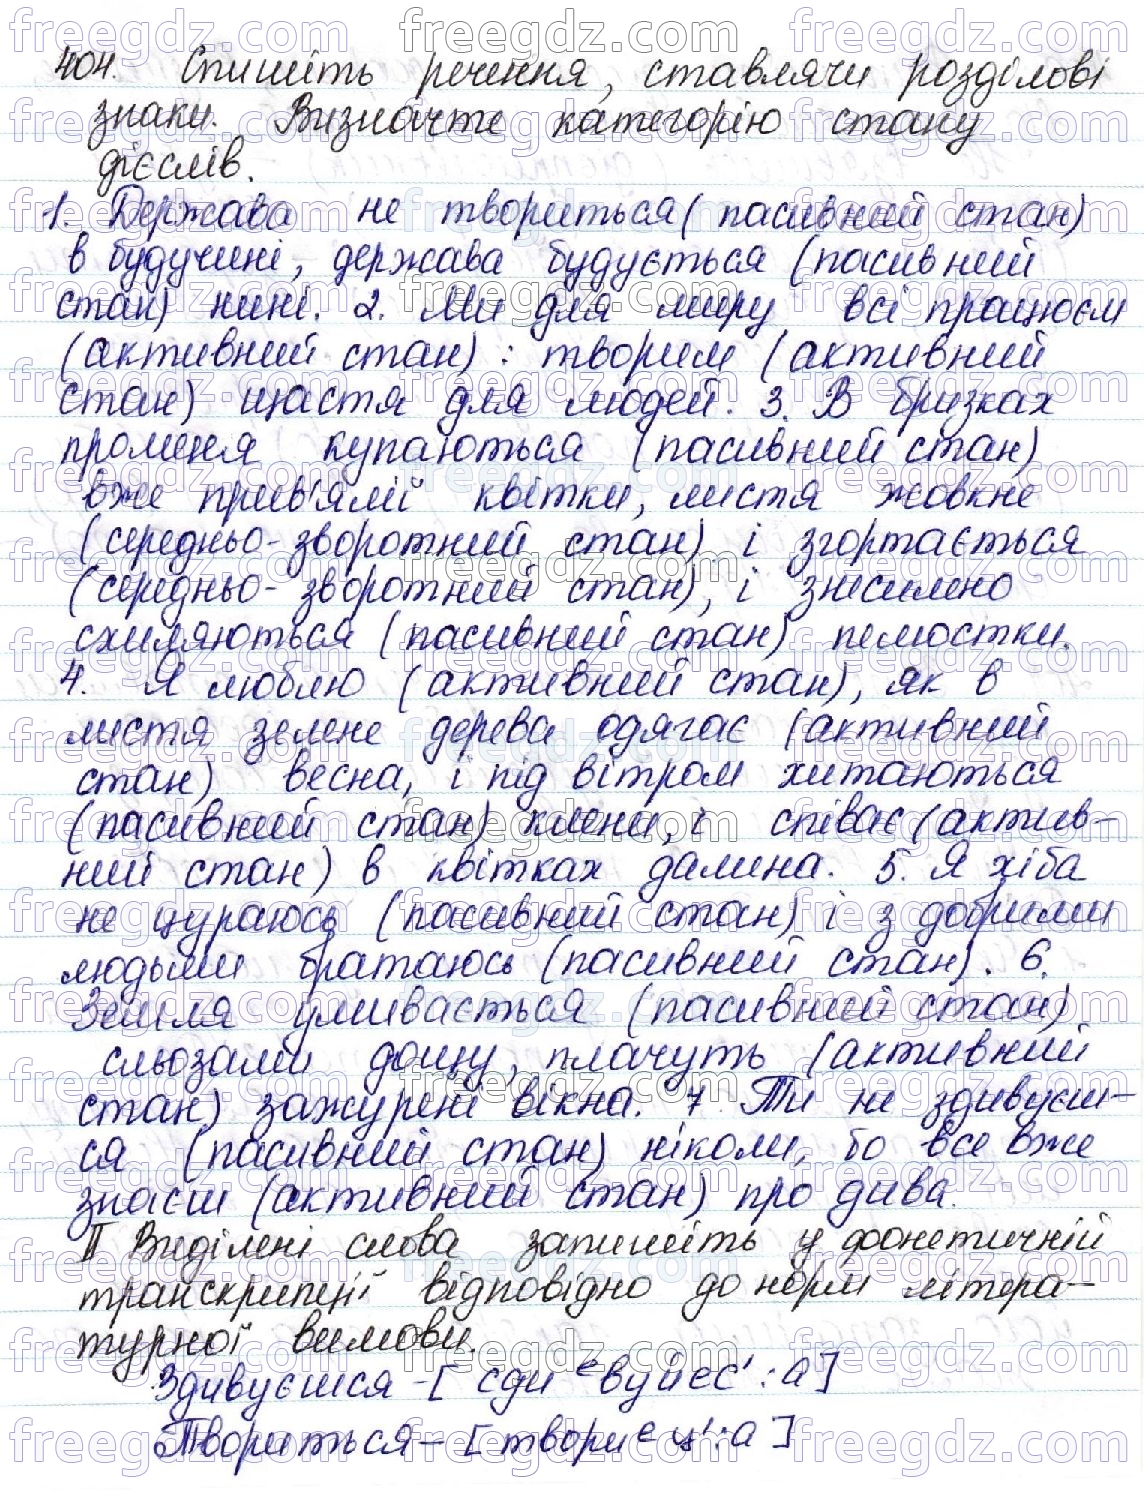 404. Спишіть речення, ставлячи розділові
знаки. Визначте категорію стану
дієслів.
1. Держава не твориться (пасивний стан)
в будучині, держава будується (пасивний
стан) нині. 2. Ми для миру всі працюєм
(активний стан): творим (активний
стан) щастя для людей. 3. В бризках
променя купаються (пасивний стан)
вже прив'ялії квітки, листя жовкне
(середньо-зворотний стан) і згортається
(середньо-зворотний стан), і знесилено
схиляються (пасивний стан) пелюстки.
4. Я люблю (активний стан), як в
листя зелене дерева одягає (активний
стан) весна, і під вітром хитаються
(пасивний стан) клени, і співає (актив-
ний стан) в квітках далина. 5. Я хіба
не цураюсь (пасивний стан) і з добрими
людьми братаюсь (пасивний стан). 6.
Земля умивається (пасивний стан)
сльозами дощу, плачуть (активний
стан) зажурені вікна. 7 Ти не здивуєш-
ся (пасивний стан) ніколи, бо все вже
знаєш (активний стан) про дива.
ІІ Виділені слова запишіть у фонетичній
транскрипції відповідно до норм літера-
турної вимови.
Здивуєшся - [сди е вуйес' : а]
Твориться - [твори е ц' : а]
freegdz.com